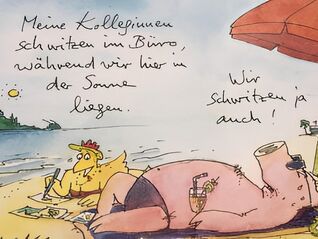 Meine Kolleginnen
schwitzen im Büro,
während wir hier in
der Sonne
liegen.
Wir
schwitzen ja
auch!